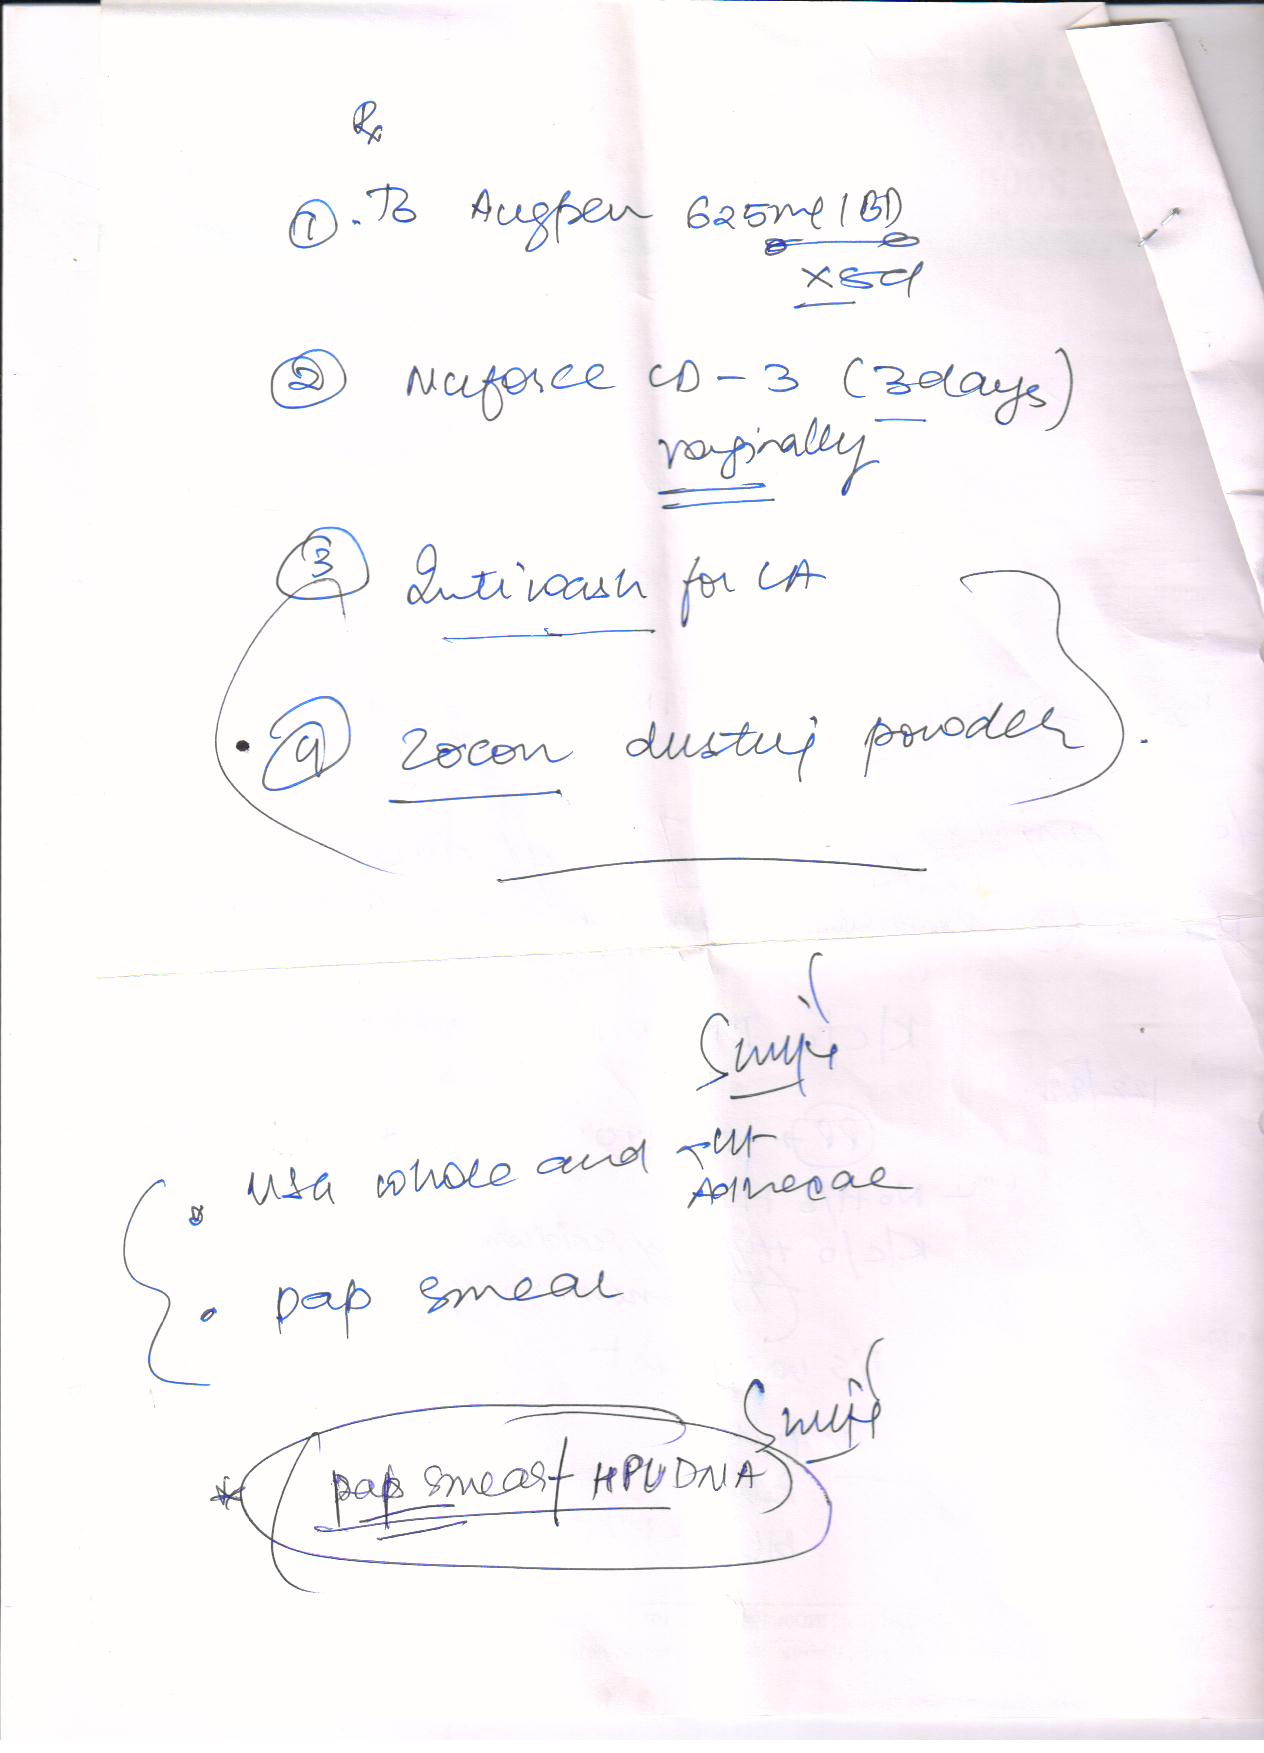 Rx
① . Tb Augpen 625mg 1BD
x 5d
② Naforce CD - 3 (3days)
vaginally
③ Intiwash for LA
④ Zocon dusting powder
USG whole and
Adnexae
pap smear
* pap smear / HPV DNA)